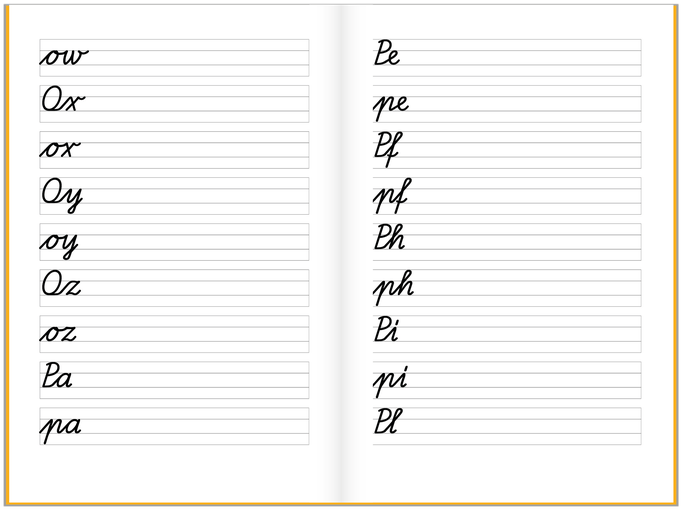 ow
Ox
ox
Oy
oy
Oz
oz
Pa
pa
Pe
pe
Pf
pf
Ph
ph
Pi
pi
Pl